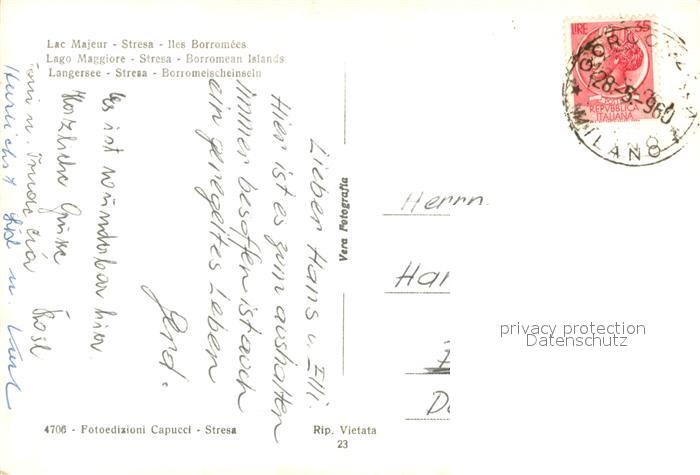 Lac Majeur - Stresa - Iles Borromées
Lago Maggiore - Stresa - Borromean Islands
Langersee - Stresa - Borromeischeinseln
Lieber Hans u. Elli.
Hier ist es zum aushalten
immer besoffen ist auch
ein geregeltes Leben
Gerd.
Es ist wunderbar hier.
Herzliche Grüsse
Rosl
Vera Fotografia
LIRE 35
POSTE
REPVBBLICA
ITALIANA
28-5-960
MILANO
Herrn
Han
D
privacy protection
Datenschutz
4706 - Fotoedizioni Capucci - Stresa
Rip. Vietata
23